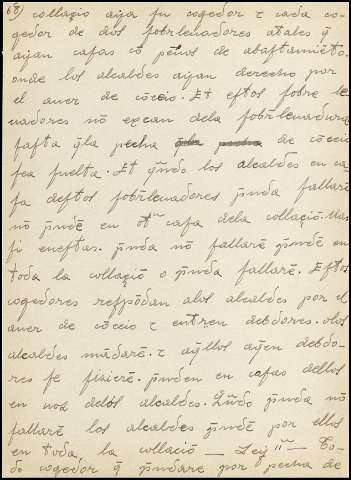 68) collaçio aya su cogedor τ cada co-
gedor de dos sobrleuadores atales q̄
ayan casas cō pēños de abastamiēto.
onde los alcaldēs ayan derecho por
el auer de cōceio. Et estos sobre le
uadores nō exean dela sobrleuadura
fasta q̄la pecha de cōceio
sea suelta. Et q̄ndo los alcaldēs en ca-
sa destos sobrleuadores p̄nda fallarē
nō p̄ndē en otᵃ casa dela collaçiō. Mas
si en estas. p̄nda nō fallarē p̄ndē en
toda la collaçiō o p̄nda fallarē. Estos
cogedores respōdan alos alcaldes por el
auer de cōceio τ entren debdores. olos
alcaldēs mādarē. τ aq̄llos ayēn debdo-
res se fizierē. p̄nden en casas dellos
en uoz delos alcaldes. Q̄ndo p̄nda nō
fallarē los alcaldēs p̄ndē por ellos
en toda, la collaciō — Ley IIᵃ — To-
do cogedor q̄ p̄ndare por pecha de